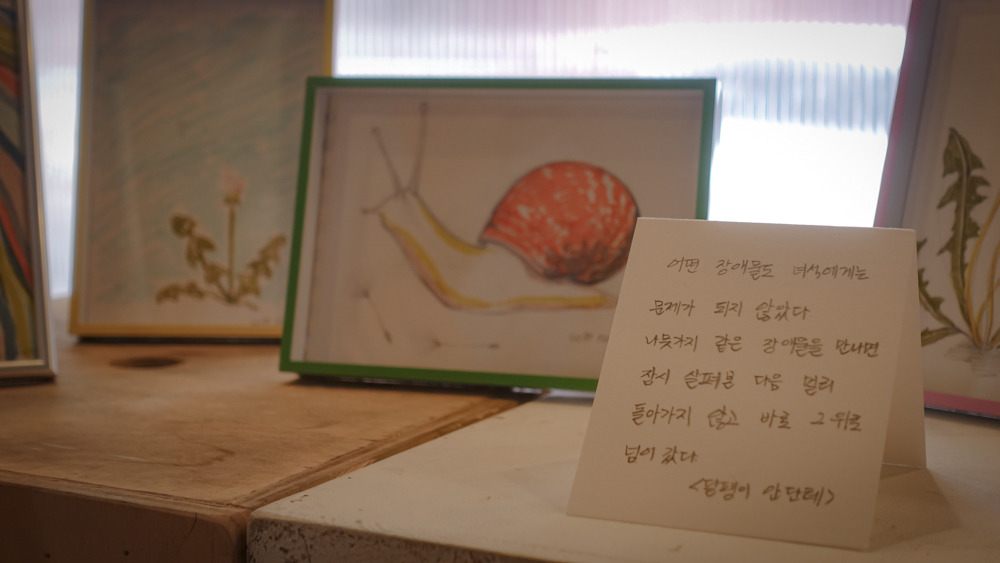 어떤 장애물도 녀석에게는
문제가 되지 않았다
나뭇가지 같은 장애물을 만나면
잠시 살펴본 다음 멀리
돌아가지 않고 바로 그 위로
넘어 갔다.
<달팽이 안단테>